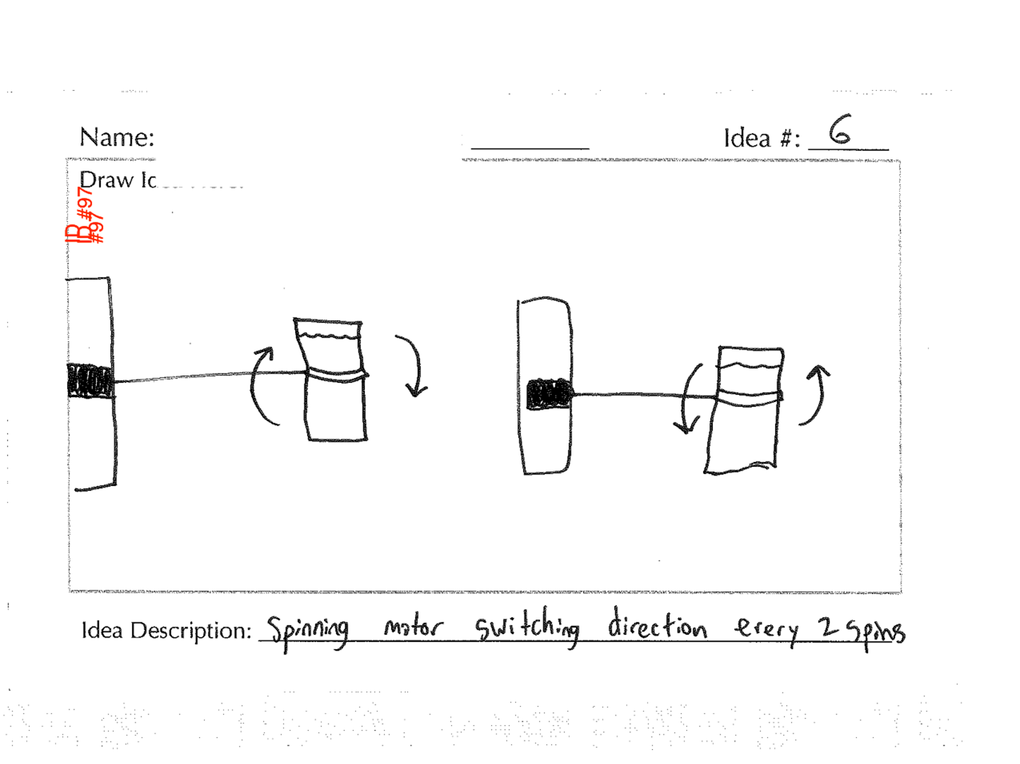 Name:
Idea #: 6
Draw Id
ID #97
ID #97
Idea Description: Spinning motor switching direction every 2 spins